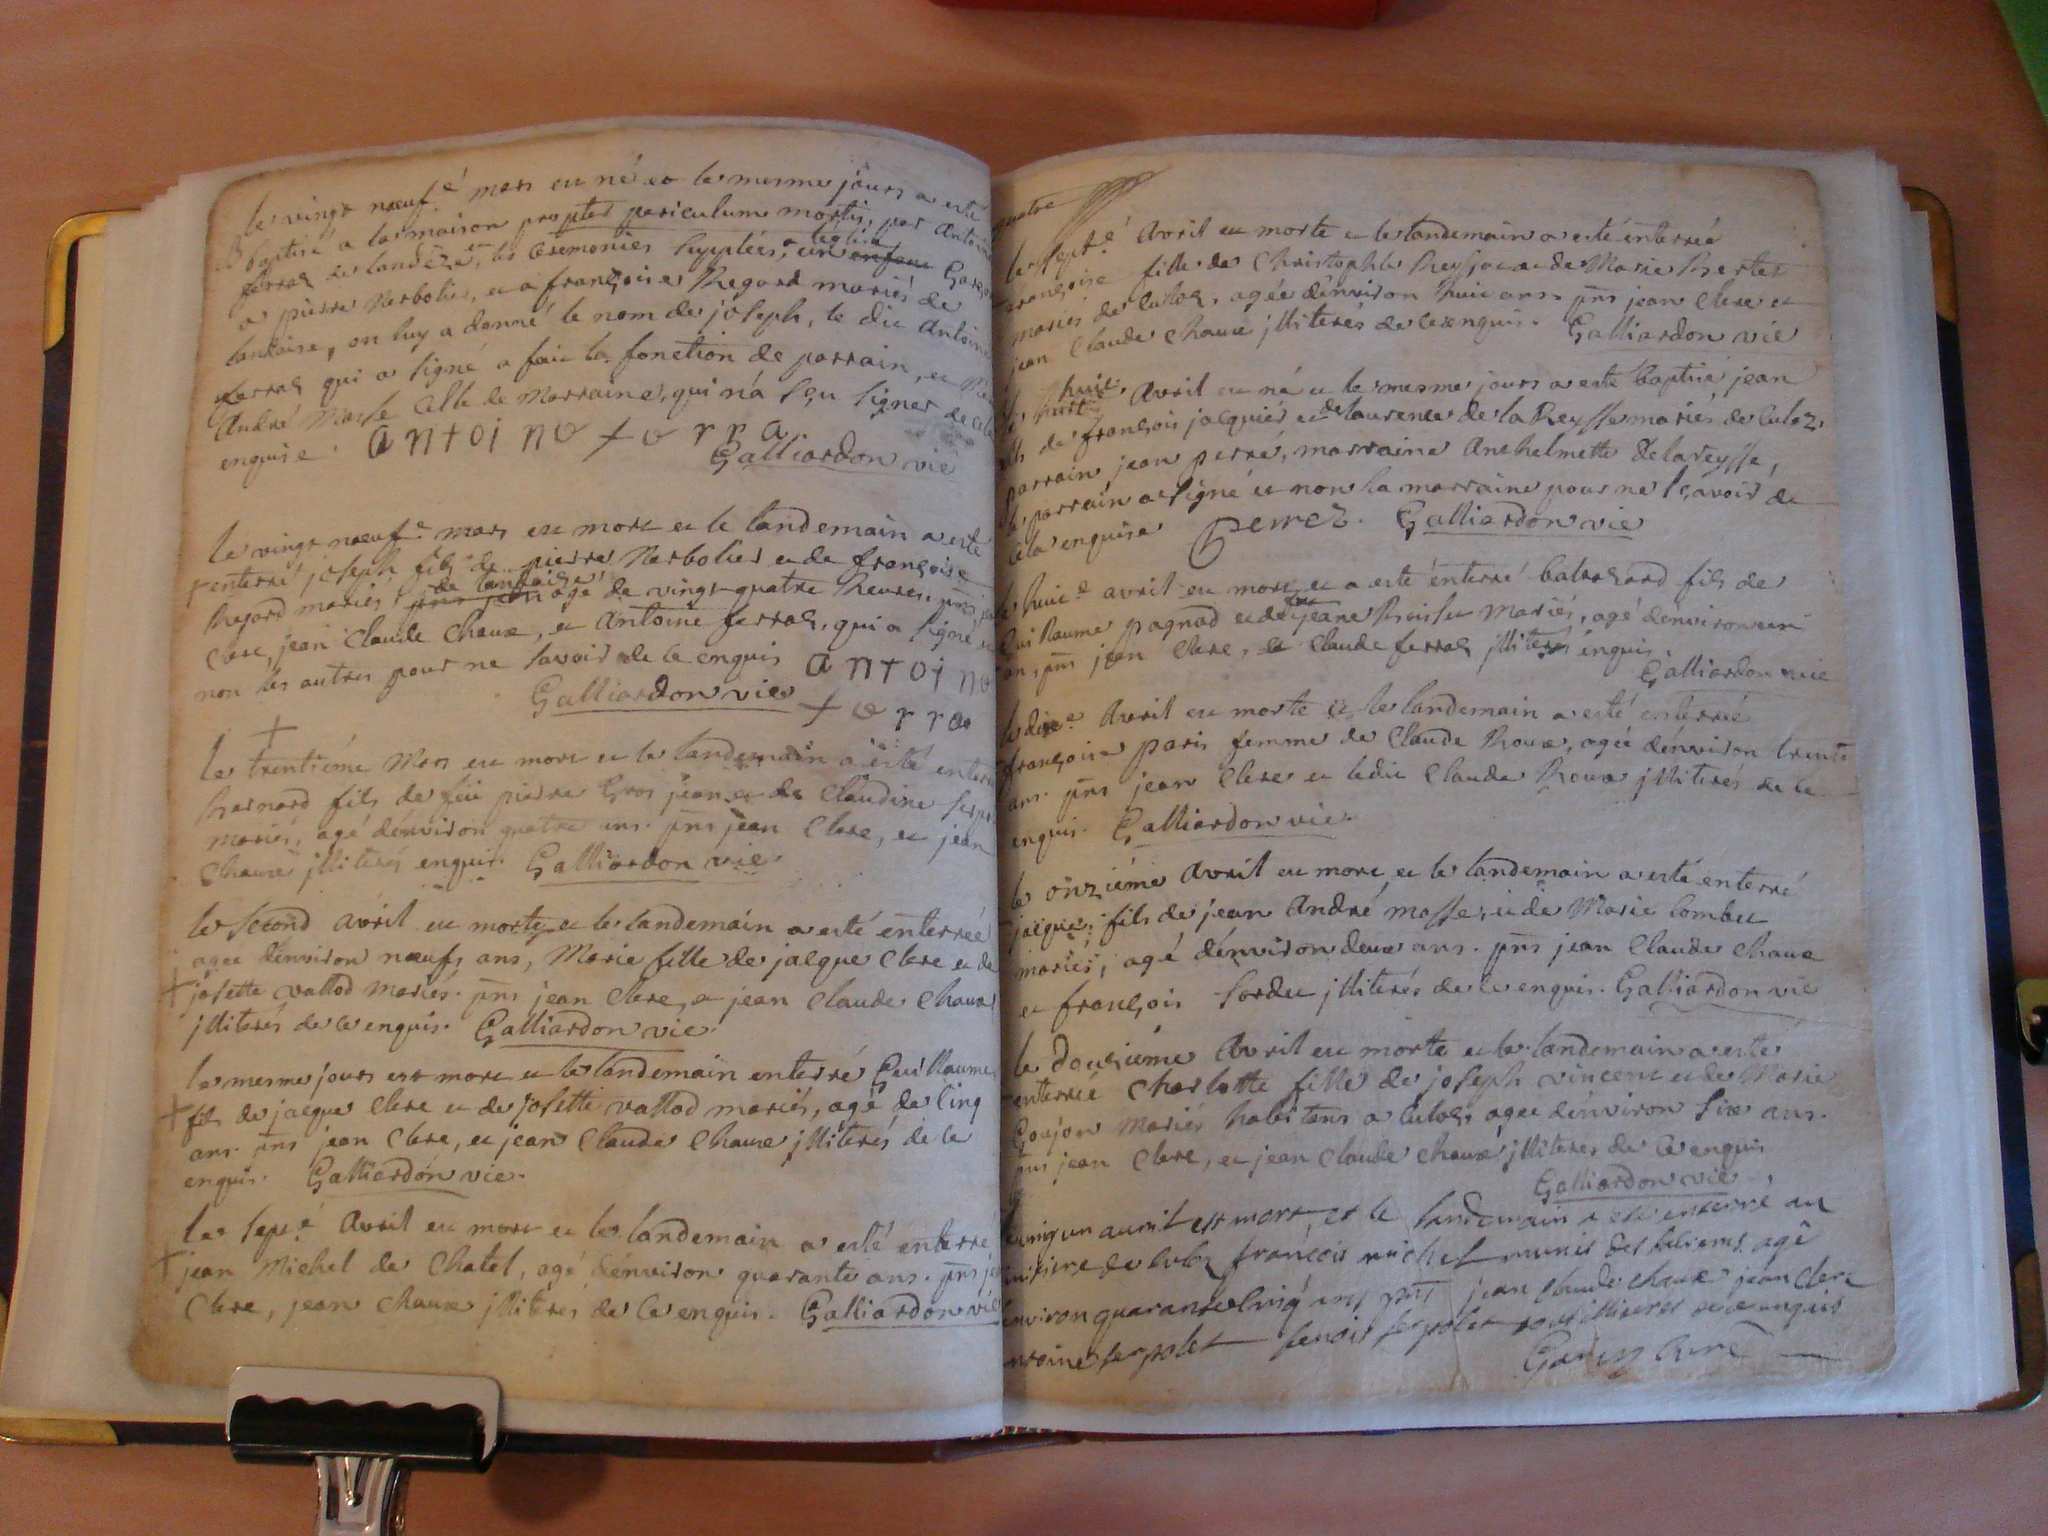 le vingt nœuf.e mars est né et le mesme jours a esté
Baptisé a la maison propter periculum mortis, par Antoine
ferraz de landaise, et les ceremonies supplées a l'église, un enfant Garçon
a pierre Berbolier, et a françoise Regard mariés de
landaise, on luy a donné le nom de joseph, le dit Antoine
ferraz qui a signé a fait la fonction de parrain, et
André Masse celle de Marraine, qui n'a sçu signer de cela
enquise. antoine ferra
Galliardon vic
le vingt nœuf.e mars est mort et le landemain a esté
enterré joseph fils de pierre Berbolier et de françoise
Regard mariés de landaise agé de vingt quatre heures, pñs
Clere, jean Claude Chaux, et Antoine ferraz, qui a signé et
non les autres pour ne savoir de ce enquis antoine
Galliardon vic ferra
le trentiéme Mars est mort et le landemain a esté enterré
Bernard fils de feu pierre Gros jean et de Claudine
mariés, agé d'environ quatre ans. pñs jean Clere, et jean
Chaux jlliterés enquis. Galliardon vic
le second avril est morte et le landemain a esté enterrée
agée d'environ nœufs ans, Marie fille de jacque Clere et de
josette vallod mariés. pñs jean Clere, et jean Claude Chaux
jlliterés de ce enquis. Galliardon vic
le mesme jours est mort et le landemain enterré Guillaume
fils de jacque Clere et de josette vallod mariés, agé de cinq
ans. pñs jean Clere, et jean Claude Chaux jlliterés de ce
enquis. Galliardon vic.
le sept.e Avril est mort et le landemain a esté enterré
jean Michel de Chatel, agé d'environ quarante ans. pñs
Clere, jean Chaux jlliterés de ce enquis. Galliardon vic
quatre
le sept.e Avril est morte et le landemain a esté enterrée
françoise fille de Christophle et de Marie
mariés de culoz, agée d'environ huit ans. pñs jean Clere et
jean Claude Chaux jlliterés de ce enquis. Galliardon vic
le huit Avril est né et le mesme jours a esté baptisé jean
fils de françois jacquier et de laurence de la Reysse mariés de culoz,
parrain jean perré, marraine Anthelmette Delareysse,
le parrain a signé et non la marraine pour ne sçavoir de
cela enquise perrez. Galliardon vic
le huit.e avril est mort et a esté enterré baltazard fils de
Guillaume pagnod et de jeane mariés, agé d'environ un
an, pñs jean Clere, et Claude ferraz jlliterés enquis.
Galliardon vic
le dix.e Avril est morte et le landemain a esté enterrée
françoise paris femme de Claude Roux, agée d'environ trente
ans. pñs jean Clere et ledit Claude Roux jlliterés de ce
enquis. Galliardon vic.
le onziéme Avril est mort et le landemain a esté enterré
jacque, fils de jean André masse, et de Marie Combet
mariés, agé d'environ deux ans. pñs jean Claude Chaux
et françois Sordet jlliterés de ce enquis. Galliardon vic
le douziéme Avril est morte et le landemain a esté
enterrée Charlotte fille de joseph vincent et de Marie
Goujon Mariés habitans a culoz, agée d'environ six ans.
pñs jean Clere, et jean Claude Chaux jlliterés de ce enquis
Galliardon vic
vingt un avril est mort, et le landemain a esté enterré au
cimitiere de culoz françois michel munit des sacrems agé
environ quarante cinq ans pñts jean claude chaux jean clere
antoine serpolet benoit serpolet tous illiteres de ce enquis
Garin curé